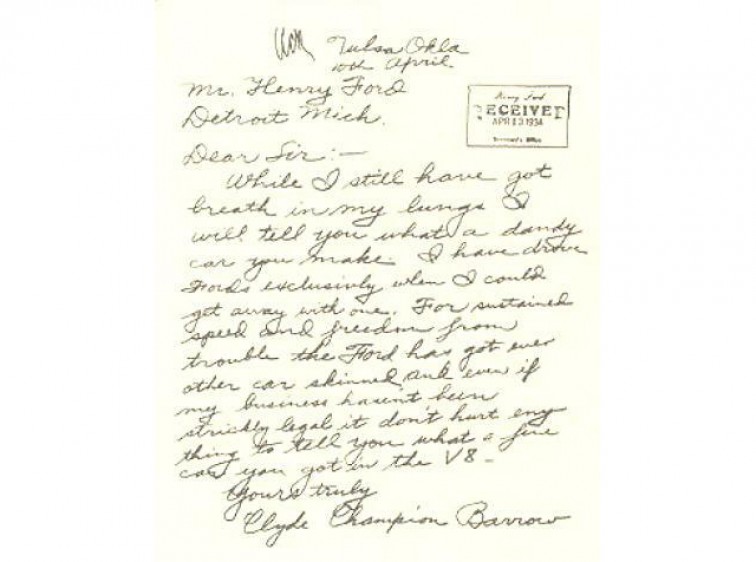 Tulsa Okla
10th April
Mr. Henry Ford
Detroit Mich.
Henry Ford
RECEIVED
APR 13 1934
Secretary's Office
Dear Sir:—
While I still have got
breath in my lungs I
will tell you what a dandy
car you make. I have drove
Fords exclusivly when I could
get away with one. For sustained
speed and freedom from
trouble the Ford has got ever
other car skinned, and even if
my business hasen't been
strickly legal it don't hurt eny
thing to tell you what a fine
car you got in the V8 –
Yours truly
Clyde Champion Barrow